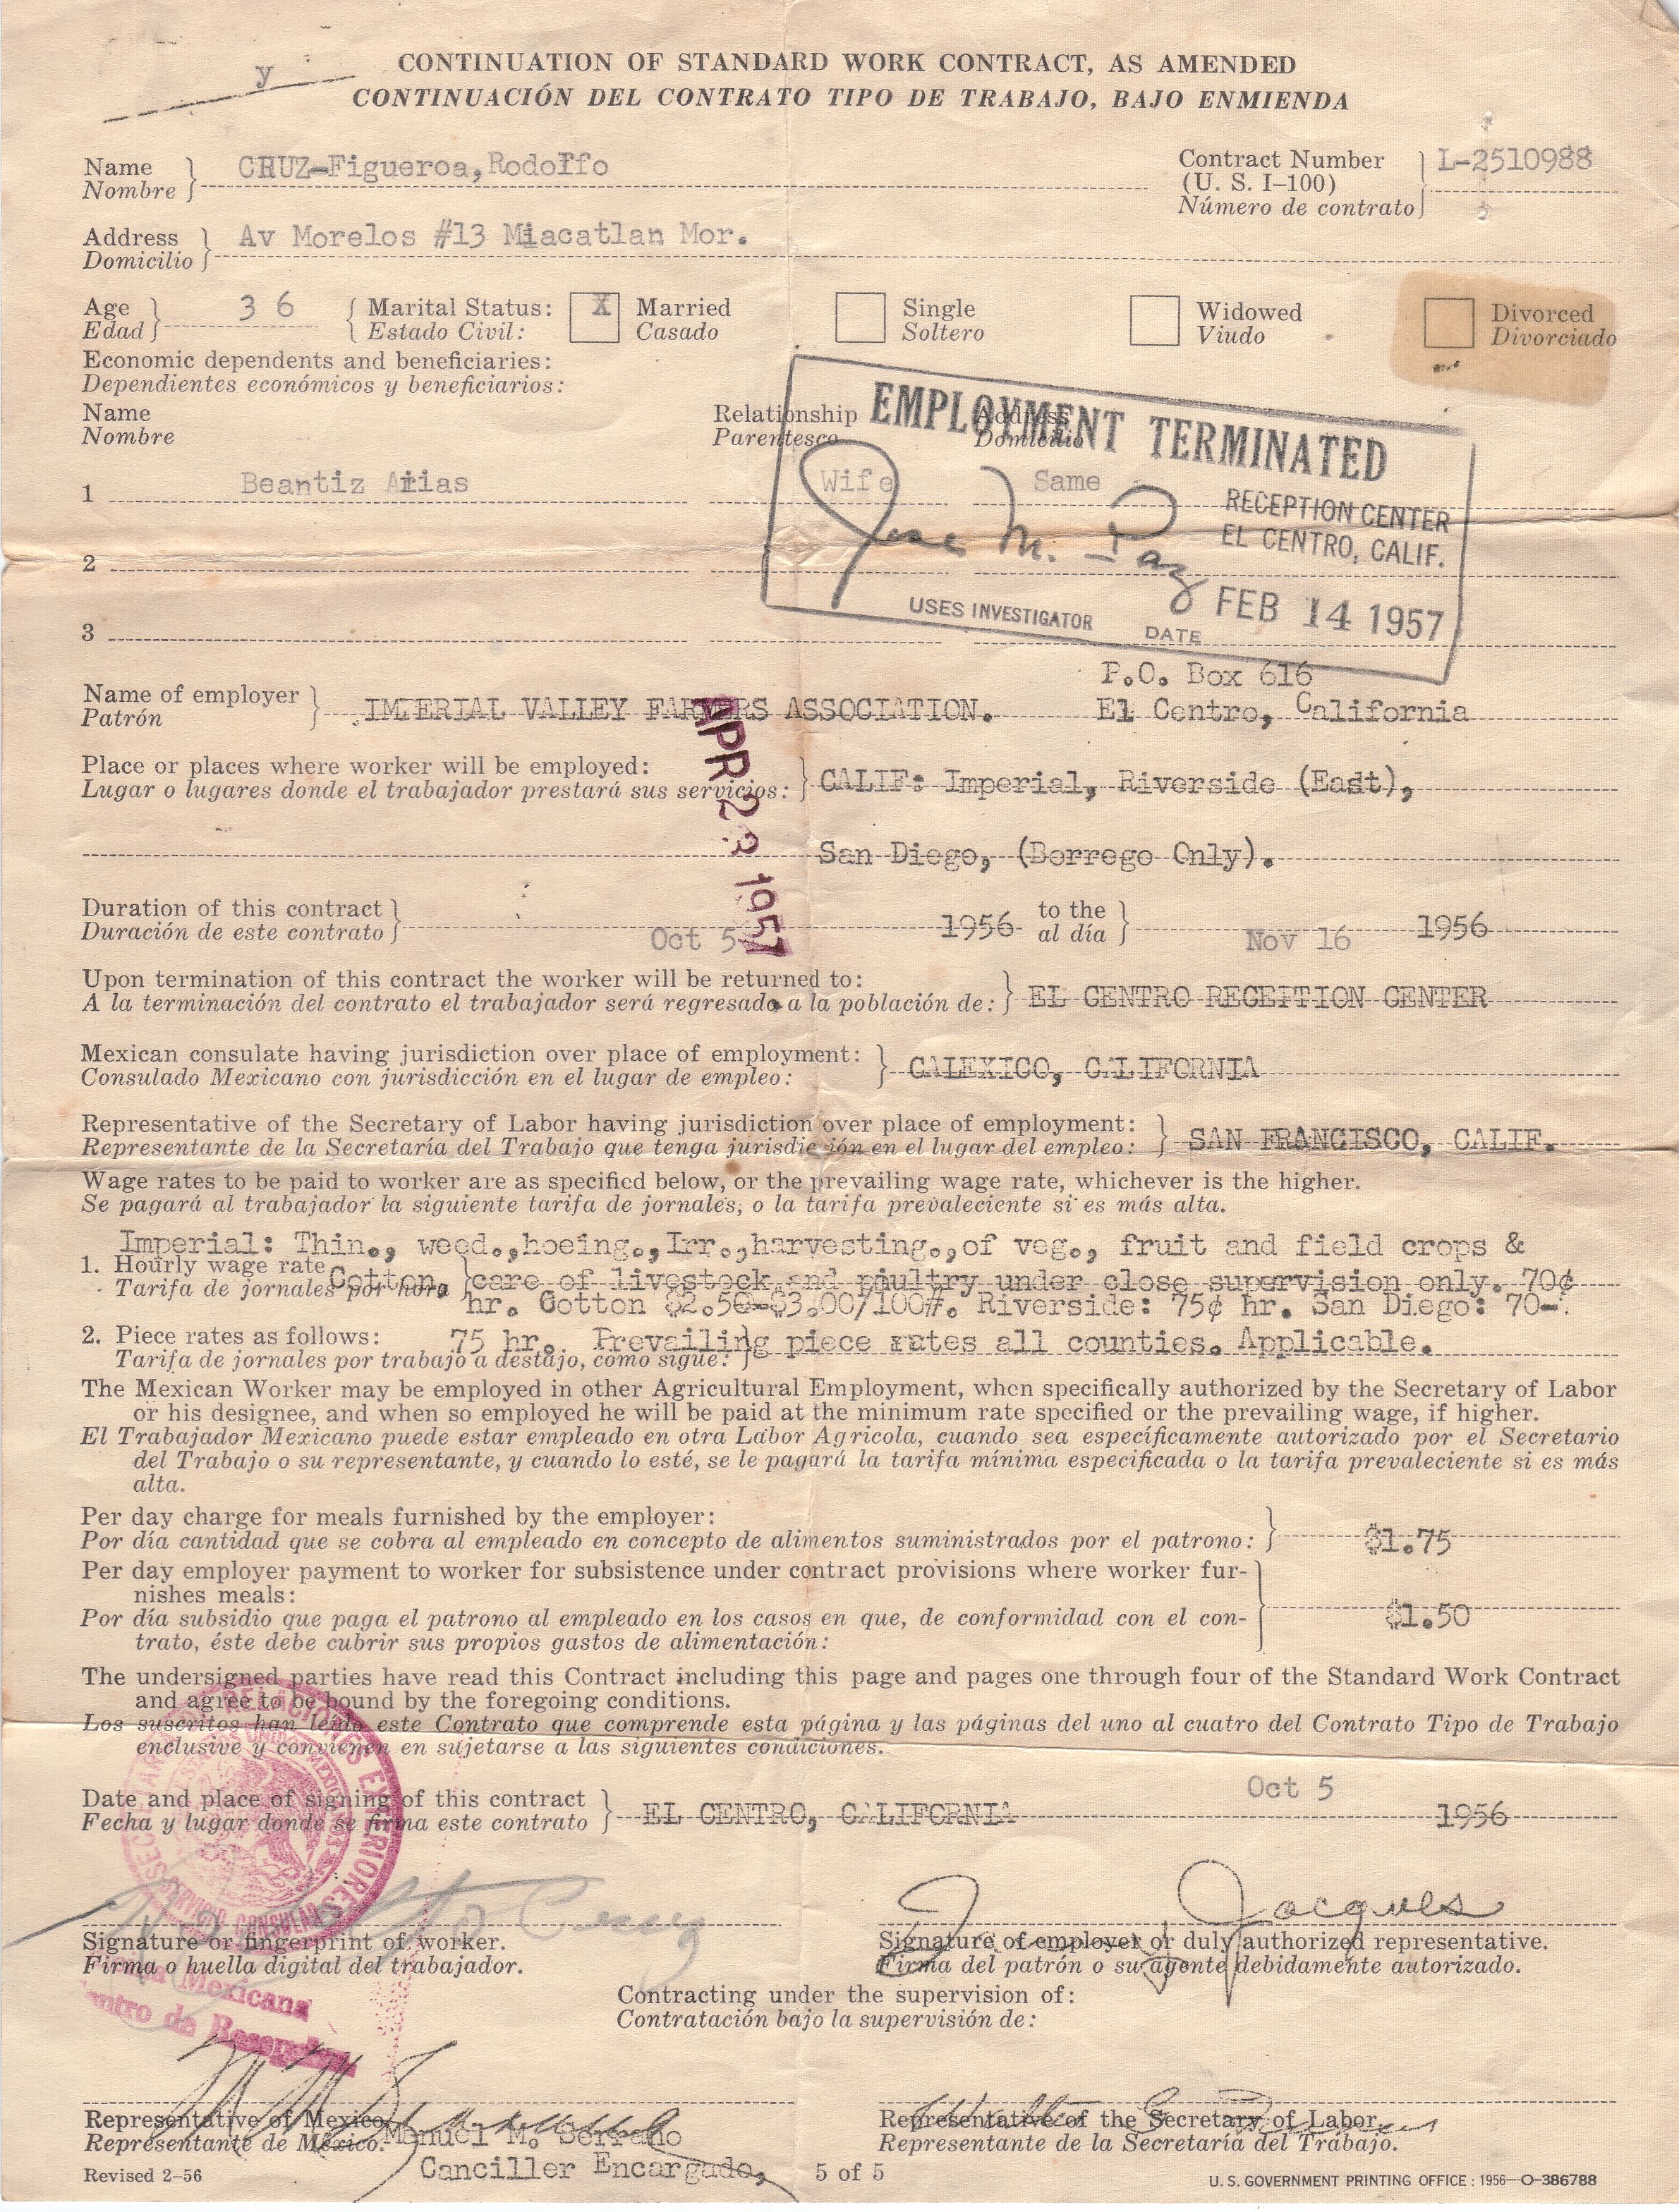 y
CONTINUATION OF STANDARD WORK CONTRACT, AS AMENDED
CONTINUACIÓN DEL CONTRATO TIPO DE TRABAJO, BAJO ENMIENDA
Name CRUZ-Figueroa, Rodolfo Contract Number L-2510988
Nombre (U. S. I-100)
Número de contrato
Address Av Morelos #13 Miacatlan Mor.
Domicilio
Age 36 Marital Status: X Married Single Widowed Divorced
Edad Estado Civil: Casado Soltero Viudo Divorciado
Economic dependents and beneficiaries:
Dependientes económicos y beneficiarios:
Name Relationship Address
Nombre Parentesco Domicilio
EMPLOYMENT TERMINATED
1 Beantiz Arias Wife Same
RECEPTION CENTER
EL CENTRO, CALIF.
Jose M. Paz
2
USES INVESTIGATOR DATE FEB 14 1957
3
P.O. Box 616
Name of employer IMPERIAL VALLEY FARMERS ASSOCIATION. El Centro, California
Patrón
APR 23 1957
Place or places where worker will be employed: CALIF: Imperial, Riverside (East),
Lugar o lugares donde el trabajador prestará sus servicios:
San Diego, (Borrego Only).
Duration of this contract Oct 5 1956 to the Nov 16 1956
Duración de este contrato al día
Upon termination of this contract the worker will be returned to: EL CENTRO RECEPTION CENTER
A la terminación del contrato el trabajador será regresado a la población de:
Mexican consulate having jurisdiction over place of employment: CALEXICO, CALIFORNIA
Consulado Mexicano con jurisdicción en el lugar de empleo:
Representative of the Secretary of Labor having jurisdiction over place of employment: SAN FRANCISCO, CALIF.
Representante de la Secretaría del Trabajo que tenga jurisdicción en el lugar del empleo:
Wage rates to be paid to worker are as specified below, or the prevailing wage rate, whichever is the higher.
Se pagará al trabajador la siguiente tarifa de jornales, o la tarifa prevaleciente si es más alta.
Imperial: Thin., weed., hoeing., Irr., harvesting., of veg., fruit and field crops &
1. Hourly wage rate Cotton, care of livestock and poultry under close supervision only. 70¢
Tarifa de jornales por hora hr. Cotton $2.50-$3.00/100#. Riverside: 75¢ hr. San Diego: 70-
2. Piece rates as follows: 75 hr. Prevailing piece rates all counties. Applicable.
Tarifa de jornales por trabajo a destajo, como sigue:
The Mexican Worker may be employed in other Agricultural Employment, when specifically authorized by the Secretary of Labor
or his designee, and when so employed he will be paid at the minimum rate specified or the prevailing wage, if higher.
El Trabajador Mexicano puede estar empleado en otra Labor Agricola, cuando sea específicamente autorizado por el Secretario
del Trabajo o su representante, y cuando lo esté, se le pagará la tarifa mínima especificada o la tarifa prevaleciente si es más
alta.
Per day charge for meals furnished by the employer: $1.75
Por día cantidad que se cobra al empleado en concepto de alimentos suministrados por el patrono:
Per day employer payment to worker for subsistence under contract provisions where worker fur-
nishes meals: $1.50
Por día subsidio que paga el patrono al empleado en los casos en que, de conformidad con el con-
trato, éste debe cubrir sus propios gastos de alimentación:
The undersigned parties have read this Contract including this page and pages one through four of the Standard Work Contract
and agree to be bound by the foregoing conditions.
Los suscritos han leído este Contrato que comprende esta página y las páginas del uno al cuatro del Contrato Tipo de Trabajo
enclusive y convienen en sujetarse a las siguientes condiciones.
Date and place of signing of this contract EL CENTRO, CALIFORNIA Oct 5 1956
Fecha y lugar donde se firma este contrato
RELACIONES EXTERIORES
SERVICIO CONSULAR
Cruz J Jacques
Signature or fingerprint of worker. Signature of employer or duly authorized representative.
Firma o huella digital del trabajador. Firma del patrón o su agente debidamente autorizado.
Mexicana
Contracting under the supervision of:
Contratación bajo la supervisión de:
Representative of Mexico. Representative of the Secretary of Labor.
Representante de México. Manuel M. Serrano Representante de la Secretaría del Trabajo.
Canciller Encargado,
Revised 2-56 5 of 5 U. S. GOVERNMENT PRINTING OFFICE : 1956—O-386788